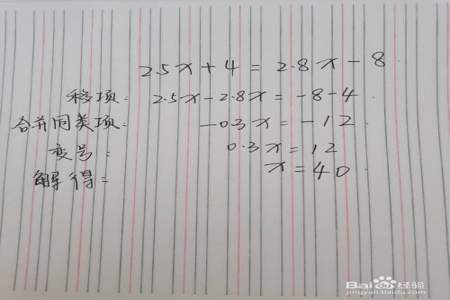 2.5x+4=2.8x-8
移项: 2.5x-2.8x=-8-4
合并同类项: -0.3x=-12
变号: 0.3x=12
解得: x=40
Baidu经验
jingyan.baidu.com